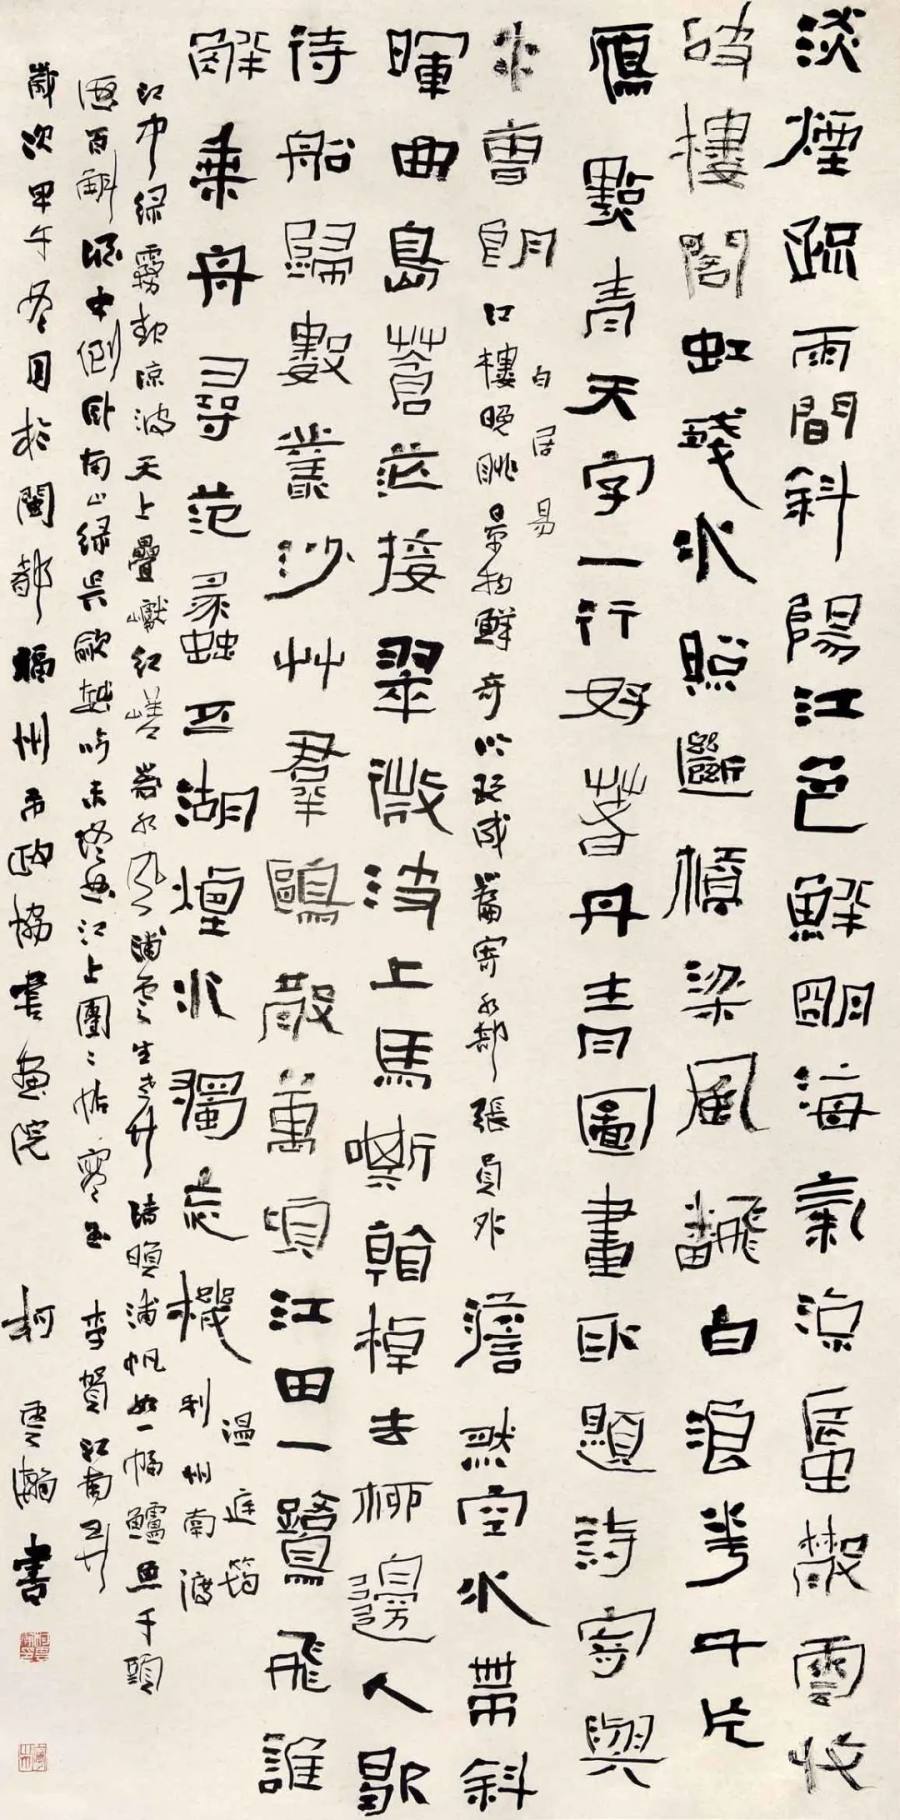 淡煙疏雨間斜陽江色鮮明海氣涼蜃散雲收
破樓閣虹殘水照斷橋梁風翻白浪花千片
鴈點青天字一行好著丹青圖畫取題詩寄與
水曹郎江樓晚眺景物鮮奇吟玩成篇寄水部張員外
白居易
澹然空水帶斜
暉曲島蒼茫接翠微波上馬嘶看棹去柳邊人歇
待船歸數叢沙艸群鷗散萬頃江田一鷺飛誰
解乘舟尋范蠡五湖煙水獨忘機利州南渡
溫庭筠
江中綠霧起涼波天上疊巘紅嵯峨水風浦雲生老竹渚暝浦帆如一幅鱸魚千頭
酒百斛酒中倒臥南山綠吳歈越吟未終曲江上團〻帖寒玉李賀江南弄
歲次甲午冬月於閩都福州市政協書畫院柯雲瀚書